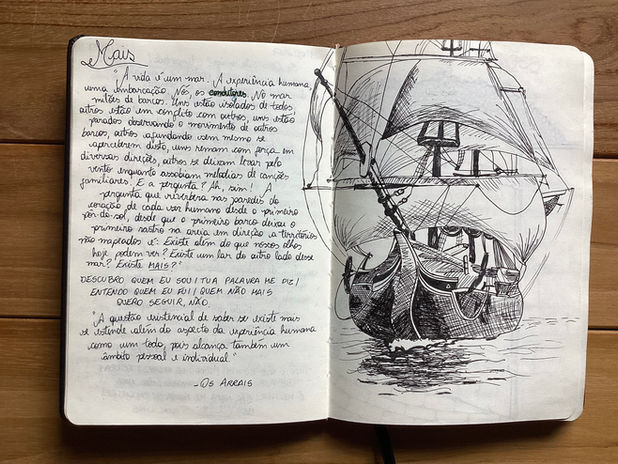 Mais
"A vida é um mar. A experiência humana,
uma embarcação. Nós, os condutores. No mar
milhões de barcos. Uns estão isolados de todos,
outros estão em conflito com outros, uns estão
parados observando o movimento de outros
barcos, outros afundando sem mesmo se
aperceberem disto, uns remam com força em
diversas direções, outros se deixam levar pelo
vento enquanto assobiam melodias de canções
familiares. E a pergunta? Ah, sim! A
pergunta que reverbera nas paredes do
coração de cada ser humano desde o primeiro
pôr-do-sol, desde que o primeiro barco deixou o
primeiro rastro na areia em direção a territórios
não mapeados é: Existe além do que nossos olhos
hoje podem ver? Existe um lar do outro lado desse
mar? Existe MAIS?"
DESCUBRO QUEM EU SOU / TUA PALAVRA ME DIZ /
ENTENDO QUEM EU FUI / QUEM NÃO MAIS
QUERO SEGUIR, NÃO.
"A questão existencial de saber se existe mais
se estende além do aspecto da experiência humana
como um todo, pois alcança também um
âmbito pessoal e individual."
- OS ARRAIS